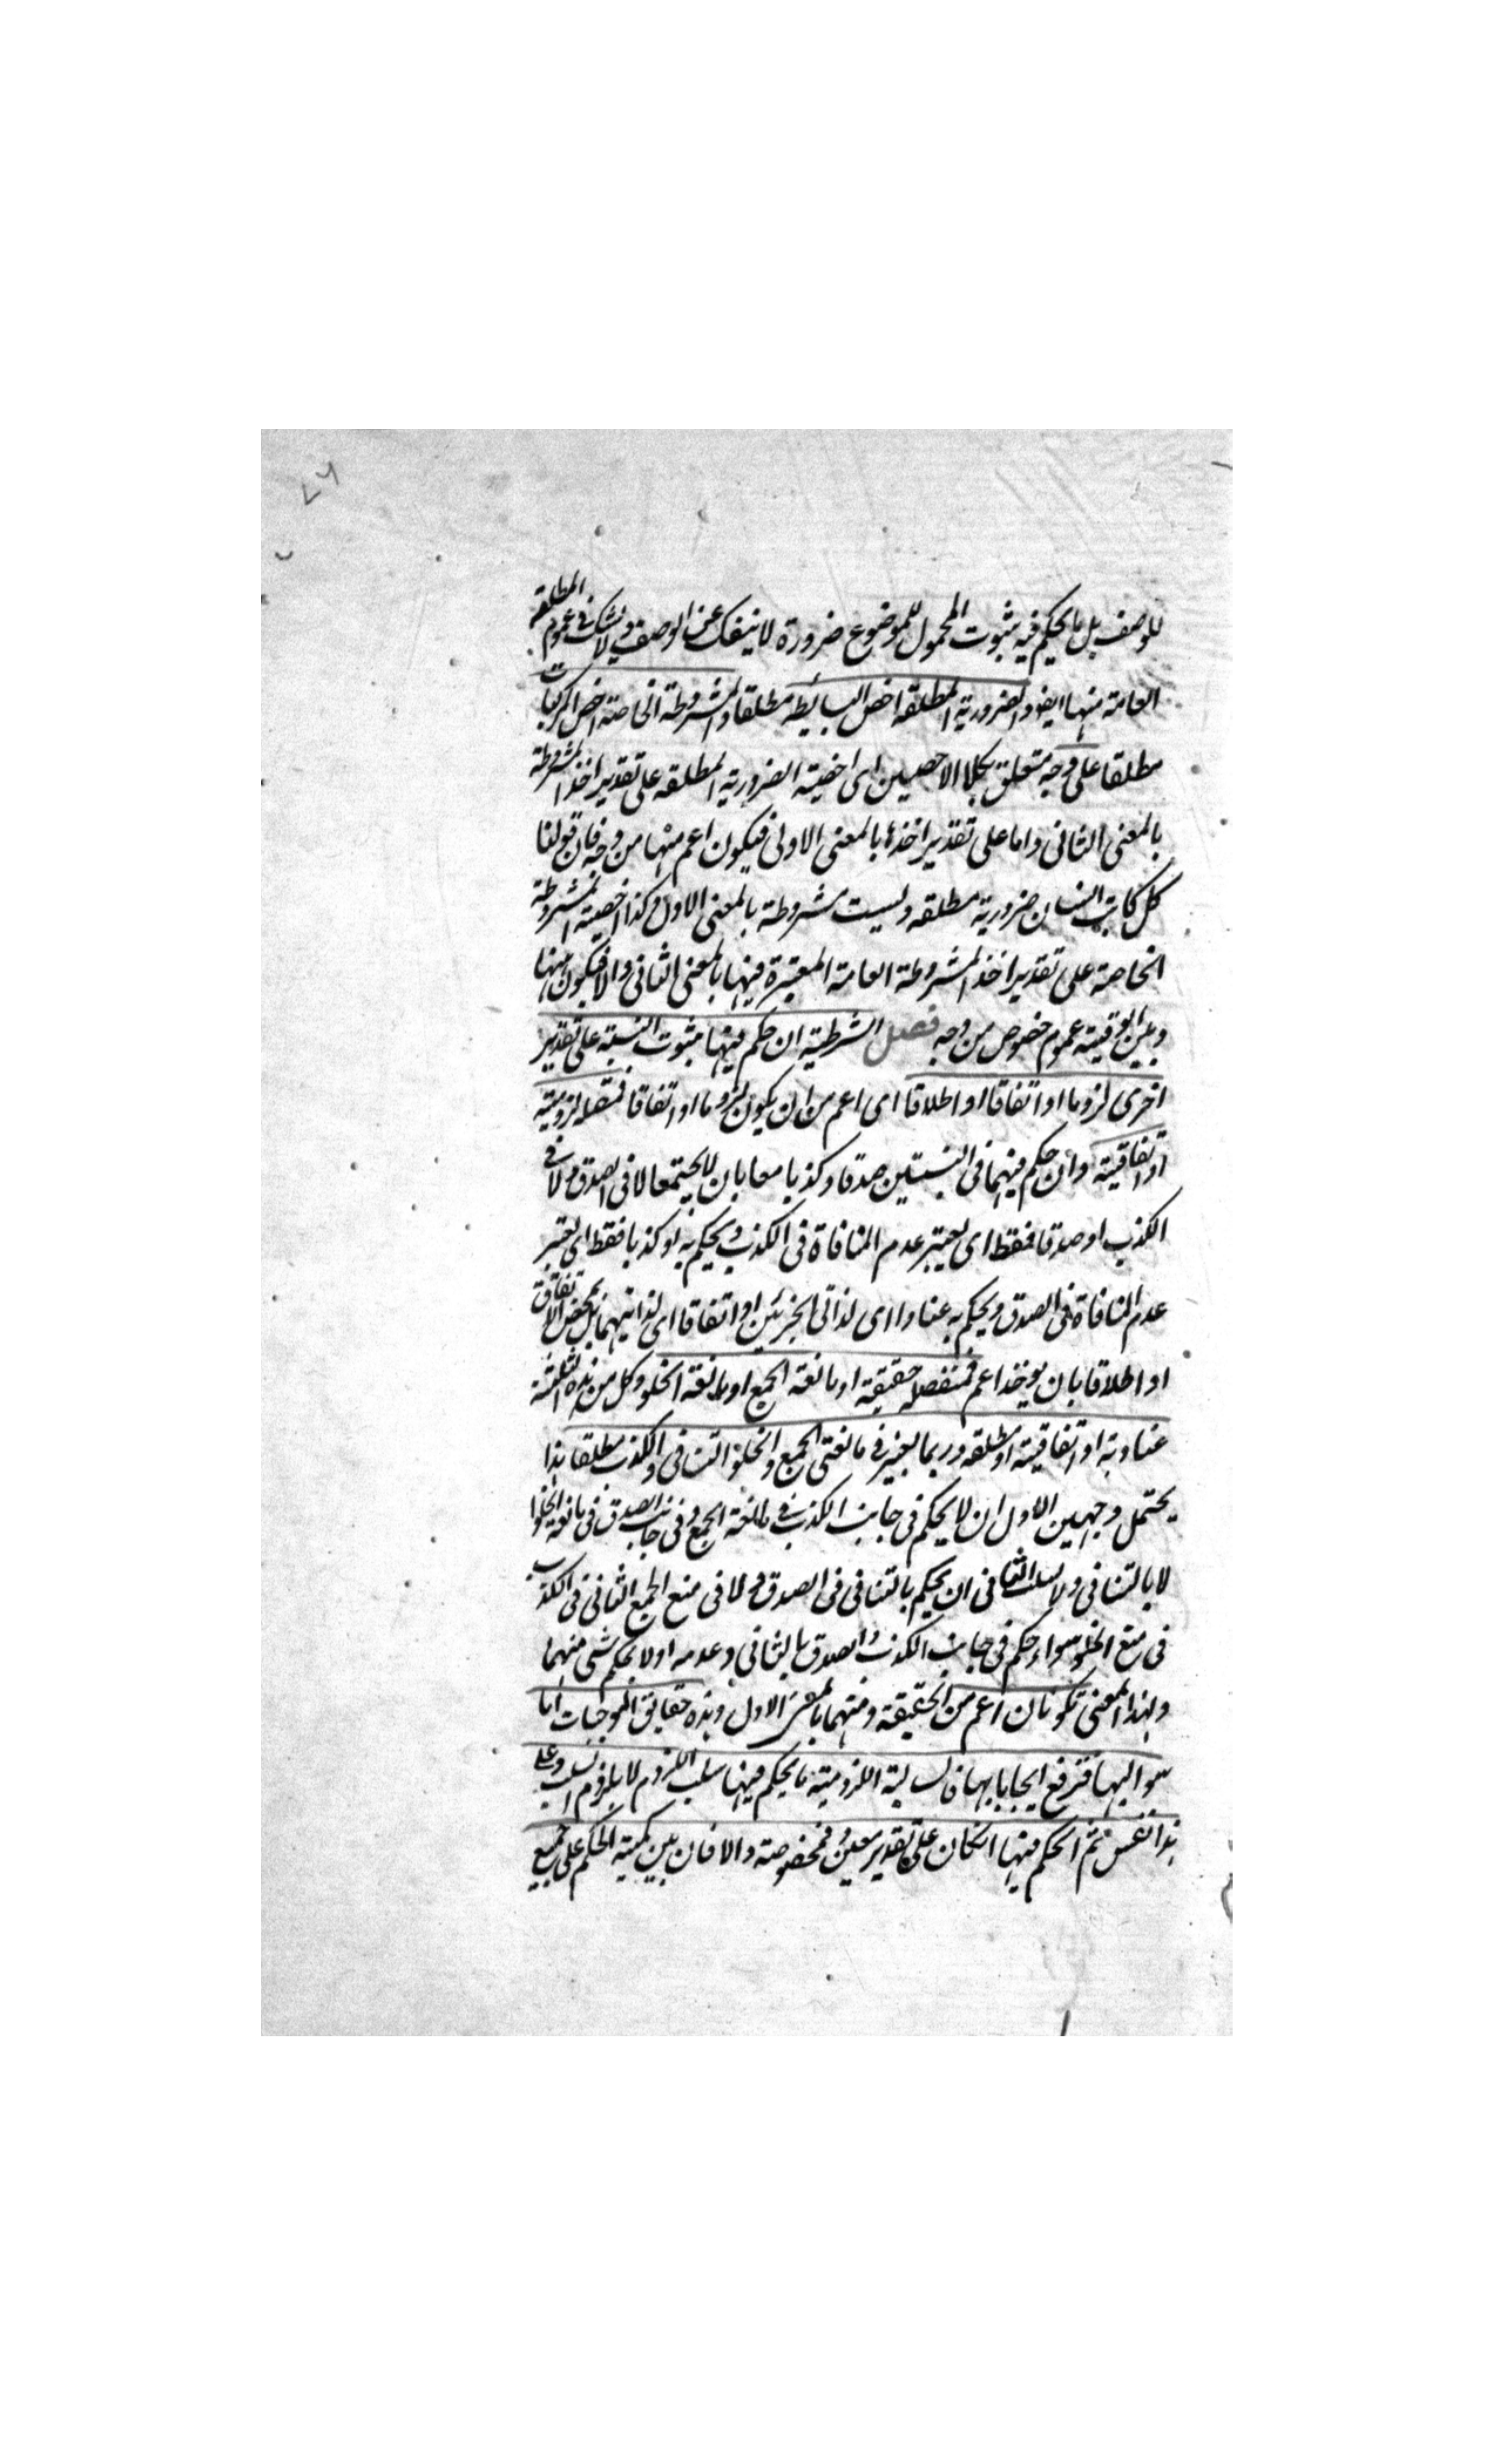 للوصف بل ما يحكم فيه بثبوت المحمول للموضوع ضرورة لا ينفك عن الوصف ولا شك فى عموم المطلقة
العامة منها ايضو والضرورية المطلقة اخص البسائط مطلقا والمشروطة الخاصة اخص المركبات
مطلقا على وجه متعلق بكلا الاخصين اى اخصية الضرورية المطلقة على تقدير اخذ المشروطة
بالمعنى الثانى واما على تقدير اخذها بالمعنى الاولى فيكون اعم منها من وجه فان قولنا
كل كاتب انسان ضرورية مطلقه وليست مشروطة بالمعنى الاول وكذا اخصية المشروطة
الخاصة على تقدير اخذ المشروطة العامة المعتبرة فيها بالمعنى الثانى والا فيكون بينها
وبين الوقتية عموم خصوص من وجه فصل الشرطية ان حكم فيها بثبوت النسبة على تقدير
اخرى لزوما او اتفاقا او اطلاقا اى اعم من ان يكون لزوما او اتفاقا فمتصلة لزومية
او اتفاقية وان حكم فيهما فى النسبتين صدقا وكذبا معا بان لا يجتمعا لا فى الصدق ولا فى
الكذب او صدقا فقط اى يعتبر عدم المنافاة فى الكذب ويحكم به او كذبا فقط اى يعتبر
عدم المنافاة فى الصدق ويحكم به عنادا اى لذاتى الجزئين او اتفاقا اى لذاتيهما بل بمحض الاتفاق
او اطلاقا بان يوخذ اعم فمنفصلة حقيقية او مانعة الجمع او مانعة الخلو وكل من هذه الثلثة
عنادية او اتفاقية او مطلقه وربما يعتبر فى مانعتى الجمع والخلو التنافى والكذب مطلقا هذا
يحتمل وجهين الاول ان لا يحكم فى جانب الكذب فى مانعة الجمع وفى جانب الصدق فى مانعة الخلو
لا بالتنافى ولا بسلب الثانى ان يحكم بالتنافى فى الصدق ولا فى منع الجمع الثانى فى الكذب
فى منع الخلو سواء حكم فى جانب الكذب والصدق بالثانى وعدمه او لا يحكم شى منهما
وبهذا المعنى تكونان اعم من الحقيقة ومنهما بالمعنى الاول وهذه حقايق الموجبات اما
سوالبها فترفع ايجاباتها فالسالبة اللزومية ما يحكم فيها سلب اللزوم لا بلزوم السلب وعلى
هذا فقس ثم الحكم فيها انكان على تقدير معين فمخصوصة والا فان بين كمية الحكم على جميع